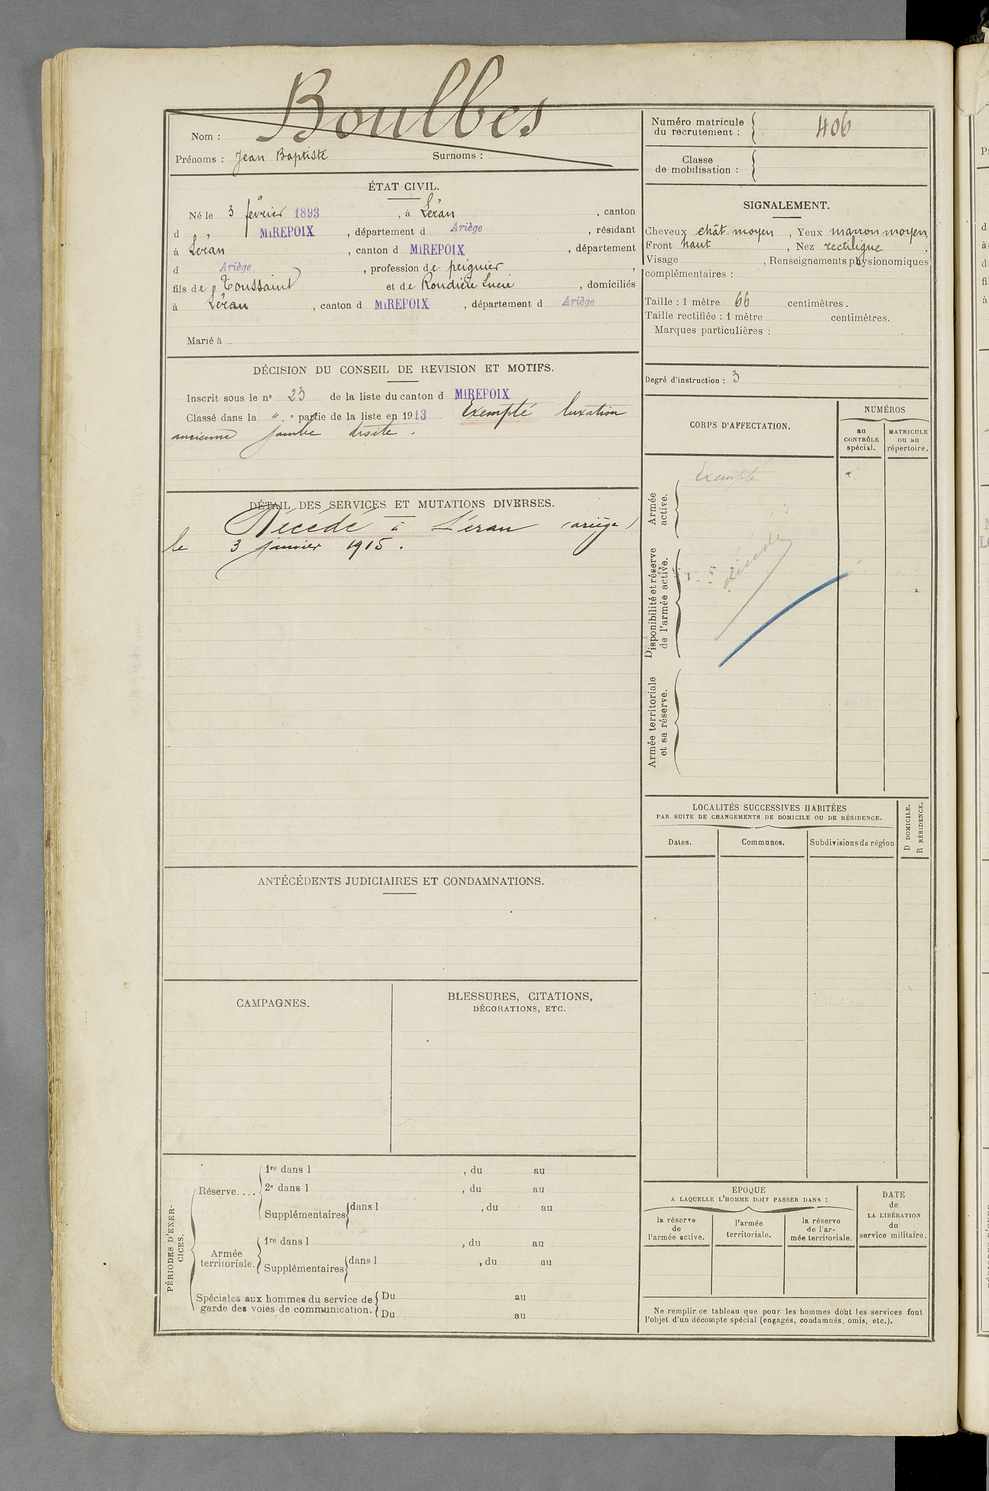 Boulbes
Nom :
Prénoms : Jean Baptiste Surnoms :
ÉTAT CIVIL.
Né le 3 février 1893, à Léran, canton
d MIREPOIX, département d Ariège, résidant
à Léran, canton d MIREPOIX, département
d Ariège, profession de peignier,
fils de Toussaint et de Roudière Lucie, domiciliés
à Léran, canton d MIREPOIX, département d Ariège
Marié à
DÉCISION DU CONSEIL DE REVISION ET MOTIFS.
Inscrit sous le n° 23 de la liste du canton d MIREPOIX
Classé dans la " . e partie de la liste en 1913 Exempté luxation
ancienne jambe droite .
DÉTAIL DES SERVICES ET MUTATIONS DIVERSES.
Décédé à Léran (ariège)
le 3 janvier 1915 .
ANTÉCÉDENTS JUDICIAIRES ET CONDAMNATIONS.
CAMPAGNES.
BLESSURES, CITATIONS,
DÉCORATIONS, ETC.
PÉRIODES D'EXER-
CICES.
Réserve....
1re dans l , du au
2e dans l , du au
Supplémentaires dans l , du au
Armée
territoriale.
1re dans l , du au
Supplémentaires dans l , du au
Spéciales aux hommes du service de
garde des voies de communication.
Du au
Du au
Numéro matricule
du recrutement : 406
Classe
de mobilisation :
SIGNALEMENT.
Cheveux chât. moyen, Yeux marron moyen,
Front haut, Nez rectiligne,
Visage , Renseignements physionomiques
complémentaires :
Taille : 1 mètre 66 centimètres.
Taille rectifiée : 1 mètre centimètres.
Marques particulières :
Degré d'instruction : 3
CORPS D'AFFECTATION.
NUMÉROS
au
CONTRÔLE
spécial.
MATRICULE
ou au
répertoire.
Armée
active.
Exempté
Disponibilité et réserve
de l'armée active.
décédé
Armée territoriale
et sa réserve.
LOCALITÉS SUCCESSIVES HABITÉES
PAR SUITE DE CHANGEMENTS DE DOMICILE OU DE RÉSIDENCE.
Dates.
Communes.
Subdivisions de région
D DOMICILE.
R RÉSIDENCE.
EPOQUE
A LAQUELLE L'HOMME DOIT PASSER DANS :
la réserve
de
l'armée active.
l'armée
territoriale.
la réserve
de l'ar-
mée territoriale.
DATE
de
LA LIBÉRATION
du
service militaire.
Ne remplir ce tableau que pour les hommes dont les services font
l'objet d'un décompte spécial (engagés, condamnés, omis, etc.).